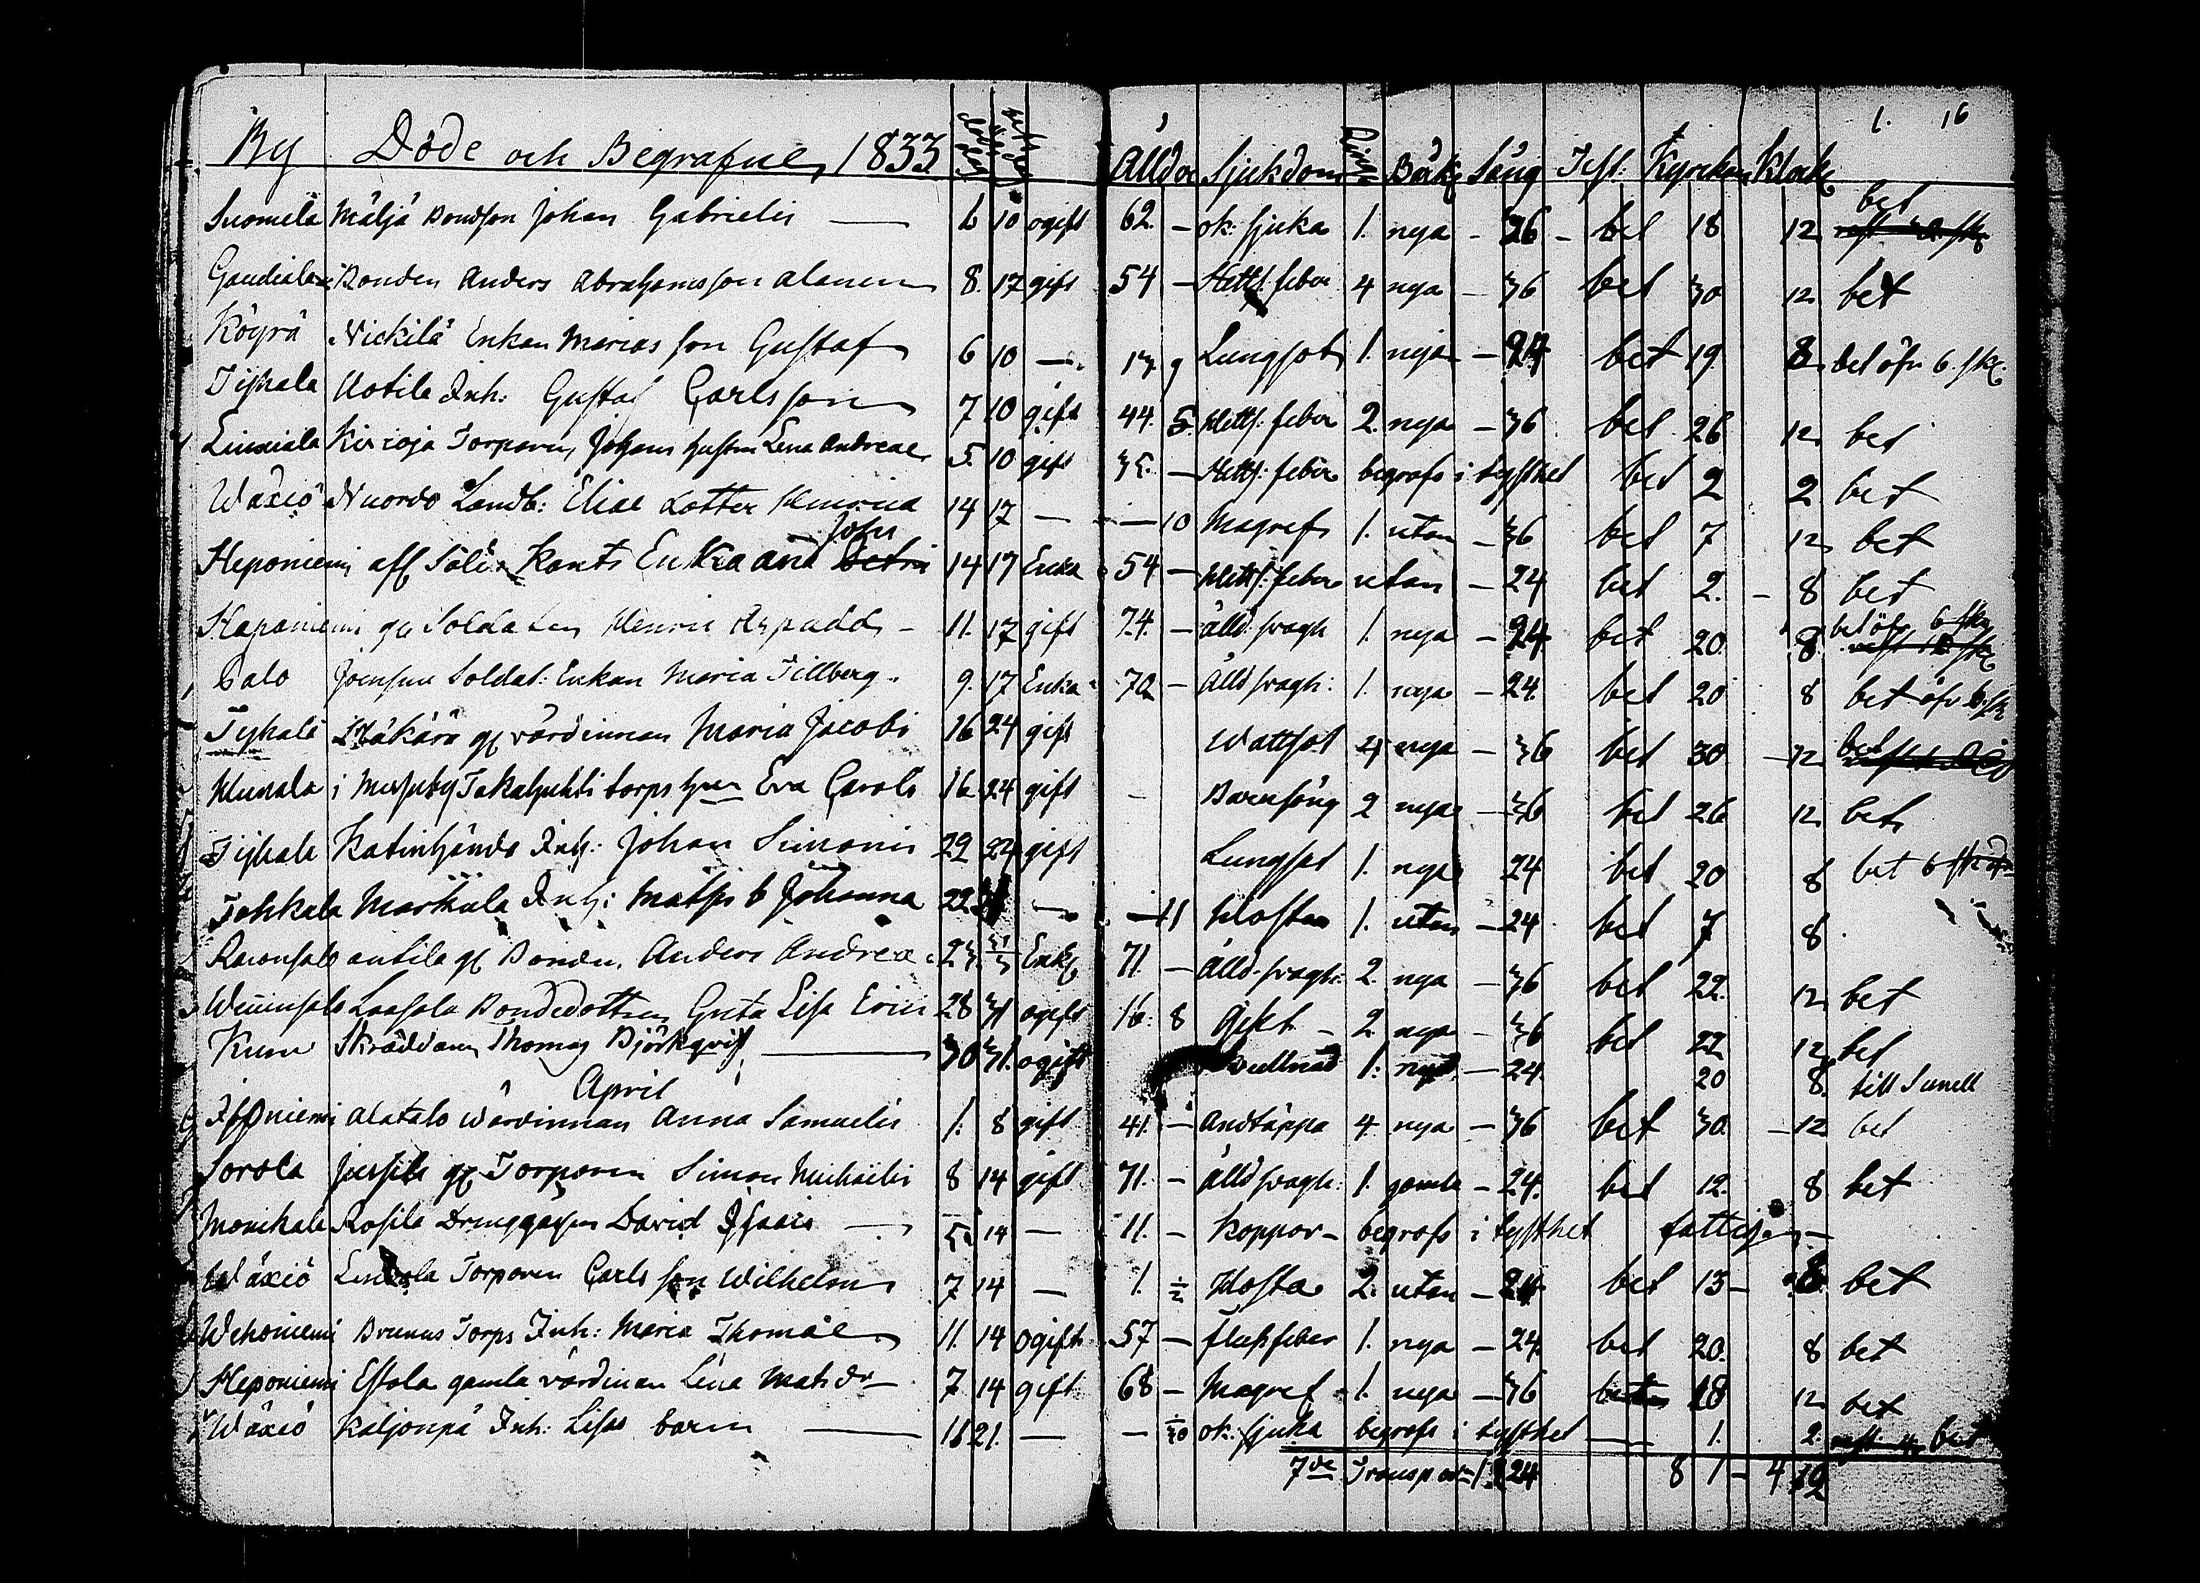 1. 16
By Döde och Begrafne, 1833 Ålldor Sjukdom Bårkl Sång Test: Kyrkan Klock
Suomela Mäljä Bondson Johan Gabrielis — 6 10 ogift 62 - ok: sjuka 1. nya - 36 - bet 18 12 bet
Gaudiala Bonden Anders Abrahamsson Alanen 8. 17 gift 54 - Hetts: feber 4 nya - 36 bet 30 12 bet
Köyrä Nickilä Enkan Marias son Gustaf 6 10 — 13 9 Lungsot 1. nya - 24 bet 19 8 bet öfr 6. sk:
Tyhala Uotila Inh: Gustaf Carlsson 7 10 gift 44. 5. Hetts: feber 2 nya - 36 bet 26 12 bet
Linniala Kirioja Torparen Johans hustru Lena Andreae 5. 10 gift 35. - Hetts: feber begrafs i tysthet bet 2 2 bet
Wäxiö Nuordo Landb: Eliae dotter Henrica 14 17 — — 10 Magref 1. utan - 36 bet 7 12 bet
Johs
Heponiemi afl Sold Konts Enka Ana 14 17 Enka 54 - Hetts: feber utan - 24 bet 2. - 8 bet
Haponiemi gl Soldaten Henric Aspadd - 11. 17 gift 74. - ålld: svagh 1. nya - 24 bet 20 8 bet öfr 6 sk
Palo Joensuu Soldat: Enkan Maria Tillberg. 9. 17 Enka 72 - Ålld svagh: 1. nya - 24. bet 20 8 bet öfr 6 sk
Tyhalä Mäkärä gl värdinnan Maria Jacobi 16 24 gift Wattsot 4 nya - 36 bet 30 - 12 bet
Hunala i Messuby Takahuhti torps hru Eva Caroli 16. 24 gift - Barnsäng 2 nya - 36 bet 26. 12 bet
Tyhala Katinhända Inh: Johan Simonis 22 24 gift Lungsot 1. nya 24 bet 20 8 bet 6 sk öfr
Tohkala Markula Inh: Matss b Johanna 22. — — 11 Hosta 1. utan - 24 bet 7 8
antila gl Bonden. Anders Andreae 23. Enkl 71. - Ålld-svagh: 2. nya - 36 bet 22. 12 bet
Laasola Bondedottren Greta Lisa Erici 28 31 ogift 16. 8 Gikt - 2 nya - 36 bet 22 12 bet
Kuru Skräddaren Thomas Björkqvist — 30 31. ogift Svullnad 1: nya - 24. 20 8. till Sunell
April
Issoniemi Alatalo Wärdinnan Anna Samuelis 1. 8 gift 41. - Andtäppa 4 nya - 36 bet 30. - 12 bet
Sorola Jussila gl Torparen Simon Michaelis 8 14 gift 71. - ålld svagh: 1. gamla - 24. bet 12. 8 bet
Monikala Rosila Drenggossen David Isaacs — 5. 14 — 11. - Koppor - begrafs i tysthet fattig —
Wäxiö Torparen Carls son Wilhelm 7 14 — 1. Hosta 2. utan - 24 bet 13 - 8 bet
Wehoniemi Brunus Torps Inh: Maria Thomae 11. 14 ogift 57 - Flussfeber 1. nya - 24. bet 20. 8 bet
Heponiemi Eskola gamla värdinnan Lena Matsdr - 7. 14 gift 68 - Magref - 1. nya - 36 18 12 bet
Wäxiö Kaljonpä Inh: Lisas barn — 16 21. — — ok: sjuka begrafs i tysthet — 1. 2. bet
7de Transporten 1. 24 8 1 - 4 12